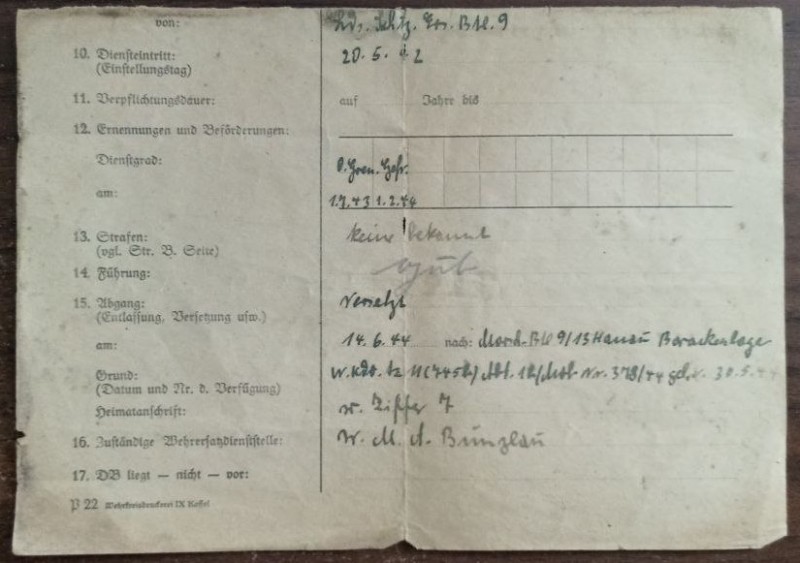 von: Lds. Schtz. Ers. Btl. 9
10. Diensteintritt: 20. 5. 42
(Einstellungstag)
11. Verpflichtungsdauer: auf Jahre bis
12. Ernennungen und Beförderungen:
Dienstgrad: O.Gren. Gefr.
am: 1.7.43 1.2.44
13. Strafen: keine bekannt
(vgl. Str. B. Seite)
14. Führung: gut
15. Abgang: versetzt
(Entlassung, Versetzung usw.)
am: 14. 6. 44 nach: Marsch-Btl 9/13 Hanau Barackenlage
Grund: W.Kdo. Abt. Nr. 378/44 30.5.
(Datum und Nr. d. Verfügung)
Heimatanschrift: w. Ziffer 7
16. Zuständige Wehrersatzdienststelle: W. M. A. Bunzlau
17. DB liegt — nicht — vor:
P 22 Wehrkreisdruckerei IX Kassel